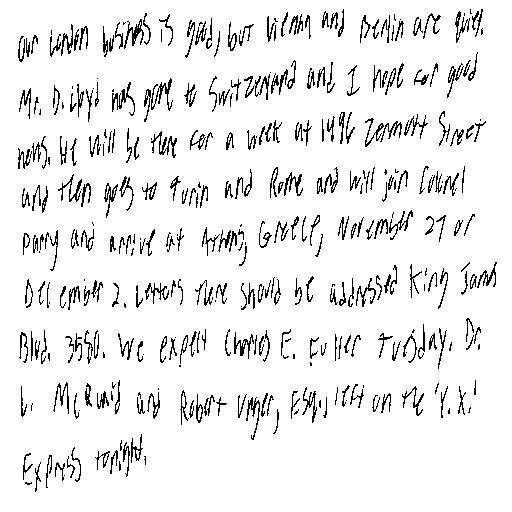 Our London business is good, but Vienna and Berlin are quiet.
Mr. D. Lloyd has gone to Switzerland and I hope for good
news. He will be there for a week at 1496 Zermott Street
and then goes to Turin and Rome and will join Colonel
Parry and arrive at Athens, Greece, November 27 or
December 2. Letters there should be addressed King James
Blvd. 3580. We expect Charles E. Fuller Tuesday. Dr.
L. McQuaid and Robert Unger, Esq., left on the 'Y.X.'
Express tonight.